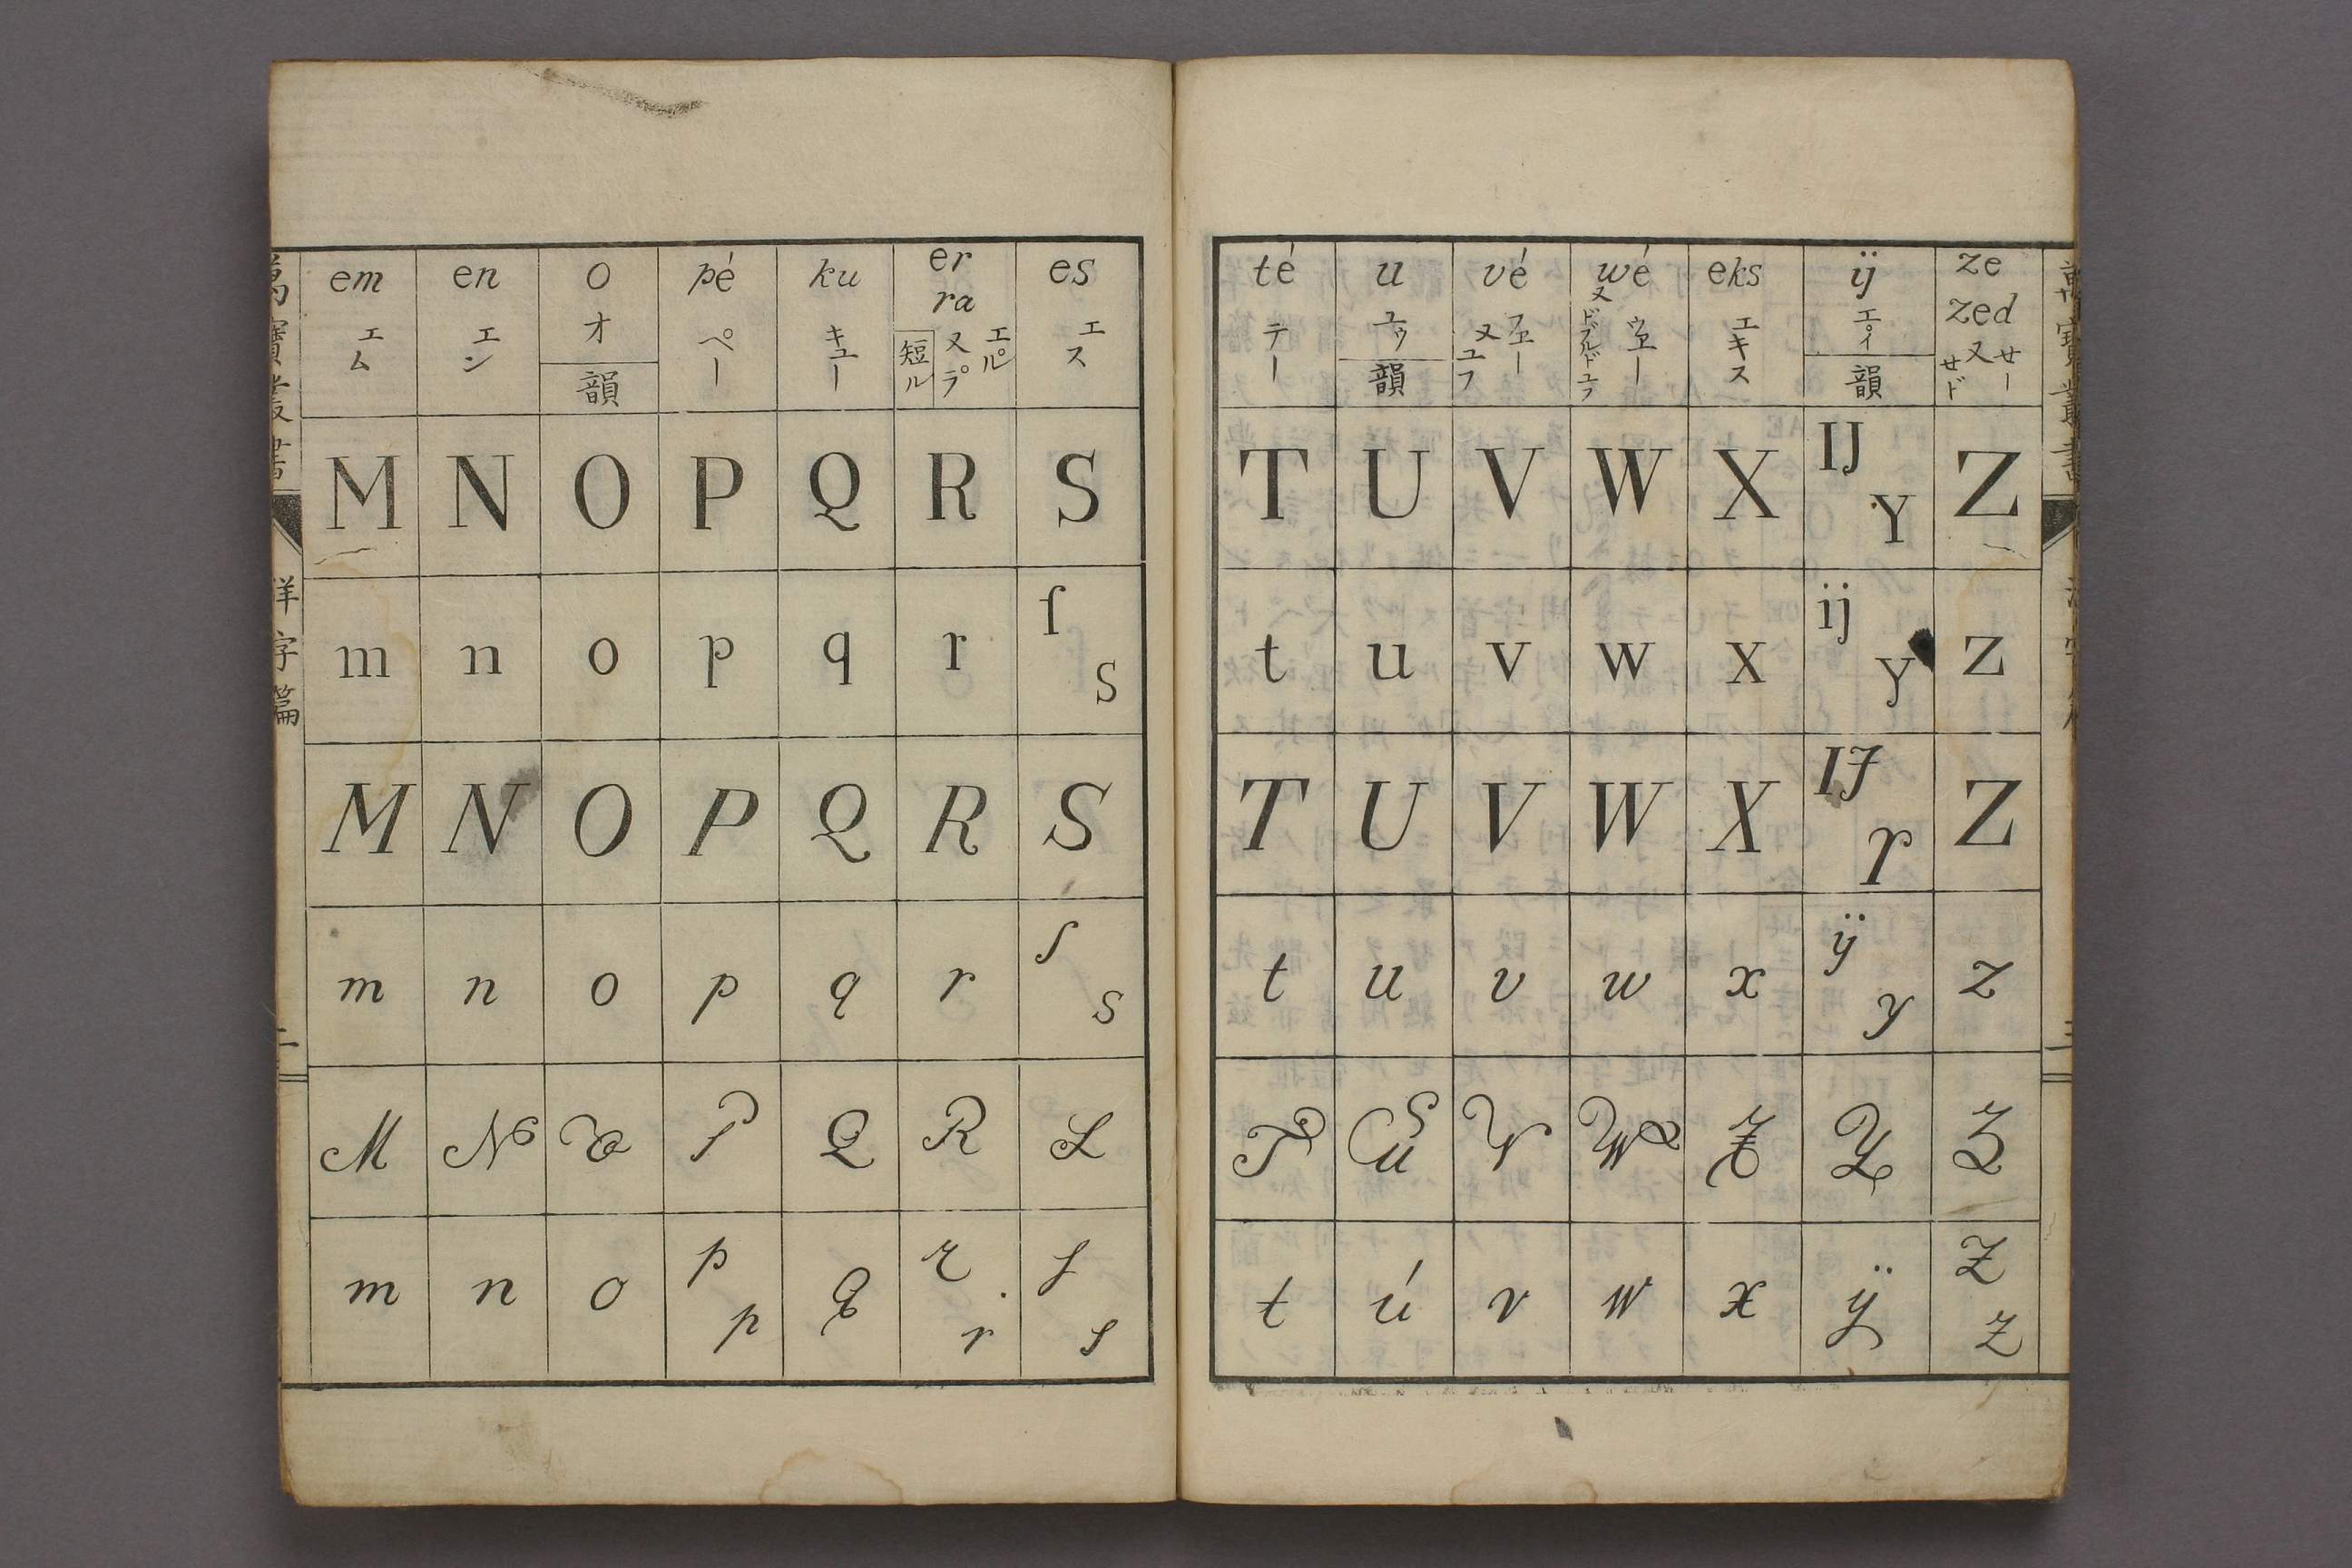 萬寶叢書
洋字篇
二
em en o pé ku er ra es
エム エン オ ペー キュー エル゚ 又ラ゚ 短ル エス
韻
M N O P Q R S
m n o p q r ſ s
M N O P Q R S
m n o p q r ſ s
M N O P Q R S
m n o p p q r r ſ s
té u vé wé eks ij ze zed
テー ユウ フヱー 又ユフ ウヱー 又ドブルドユフ エキス エ゚イ せー 又せド
韻 韻
T U V W X IJ Y Z
t u v w x ij y Z
T U V W X IJ Y Z
t u v w x ij y z
T U V W X Y Z
t ú v w x ÿ z z
萬寶叢書